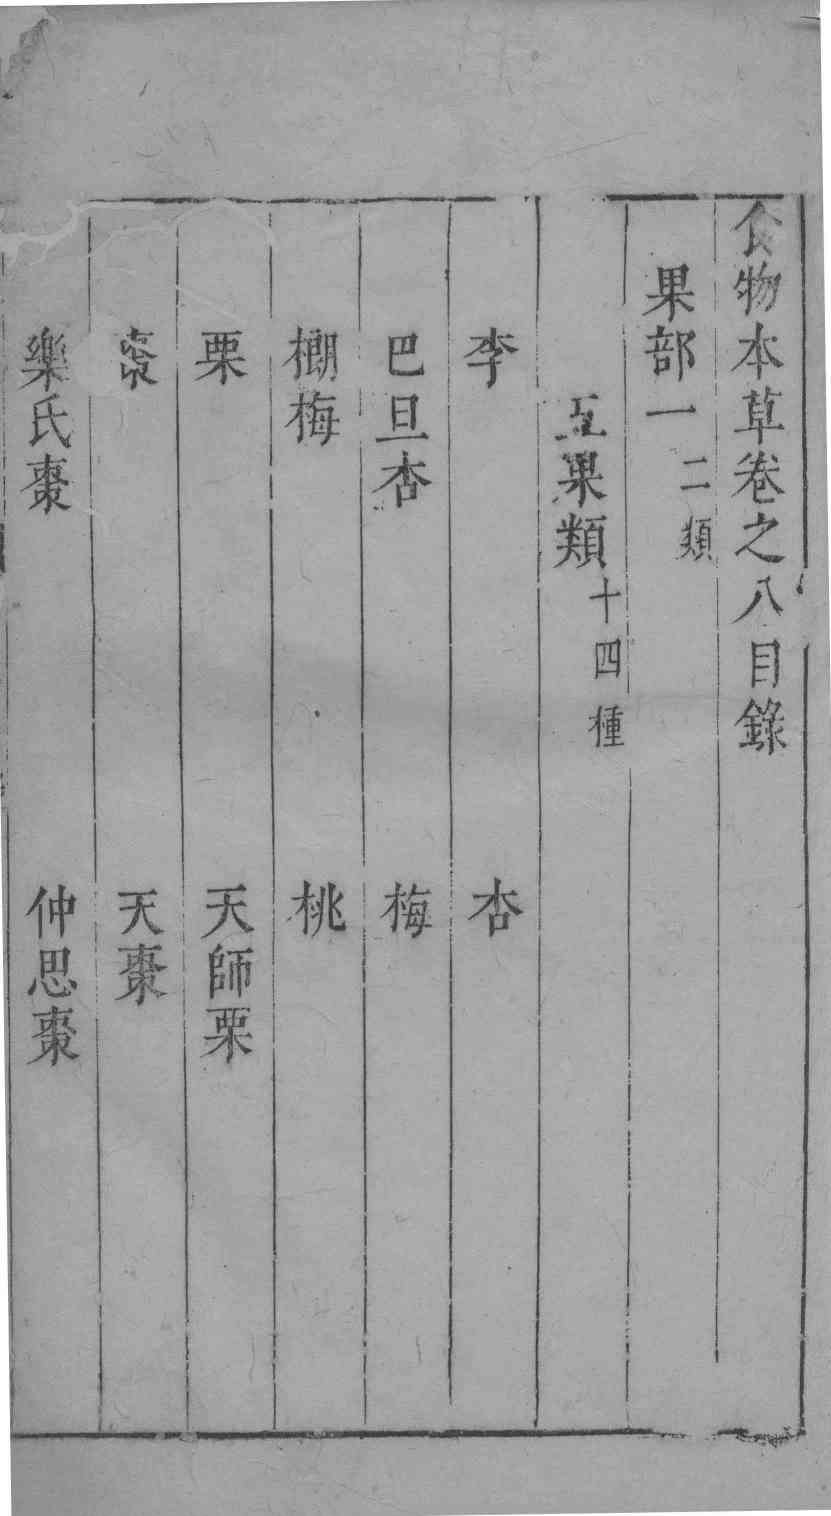 食物本草卷之八目錄
果部一 二類
五果類 十四種
李 杏
巴旦杏 梅
榔梅 桃
栗 天師栗
棗 天棗
樂氏棗 仲思棗